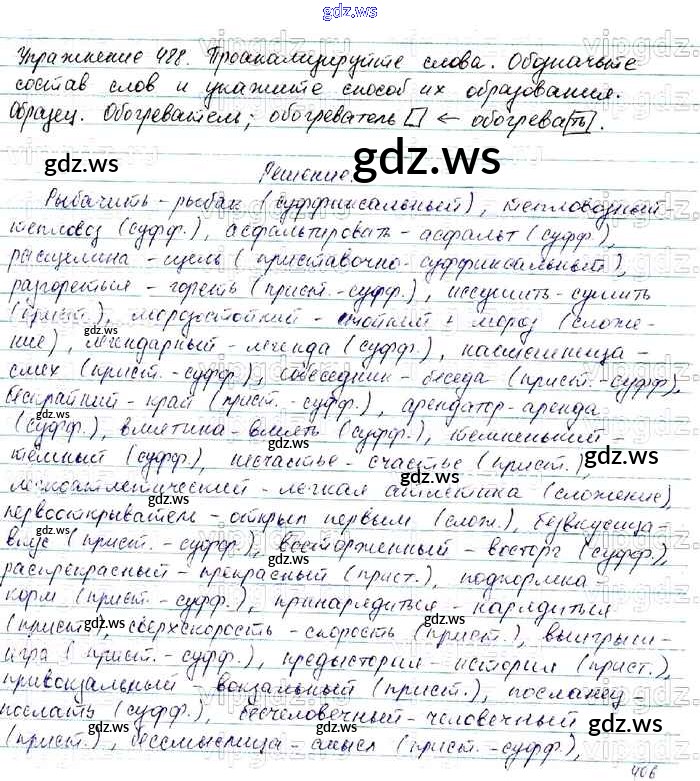 gdz.ws
Упражнение 488. Проанализируйте слова. Обозначьте
состав слов и укажите способ их образования.
Образец. Обогреватель; обогреватель ← обогрева[ть].
gdz.ws
gdz.ws
Решение.
Рыбачить - рыбак (суффиксальный), тепловозный -
gdz.ws
тепловоз (суфф.), асфальтировать - асфальт (суфф.),
расщелина - щель (приставочно-суффиксальный),
разгореться - гореть (прист.-суфф.), иссушить - сушить
gdz.ws
(прист.), морозостойкий - стойкий + мороз (сложе-
ние), легендарный - легенда (суфф.), насмешница -
смех (прист.-суфф.), собеседник - беседа (прист.-суфф),
gdz.ws
бескрайний - край (прист.-суфф.), арендатор - аренда
gdz.ws
(суфф.), вмятина - вмять (суфф.), темненький -
gdz.ws
тёмный (суфф.), несчастье - счастье (прист.),
gdz.ws
легкоатлетический - легкая атлетика (сложение),
первооткрыватель - открыл первым (слож.), безвкусица -
gdz.ws
вкус (прист.-суфф.), восторженный - восторг (суфф.),
gdz.ws
распрекрасный - прекрасный (прист.), подкормка -
корм (прист.-суфф.), принарядиться - нарядиться
gdz.ws
(прист), сверхскорость - скорость (прист.), выигрыш -
gdz.ws
игра (прист.-суфф.), предыстория - история (прист.),
gdz.ws
привокзальный - вокзальный (прист.), посланец -
gdz.ws
послать (суфф.), бесчеловечный - человечный
gdz.ws
(прист.), бессмыслица - смысл (прист.-суфф.),
gdz.ws
406